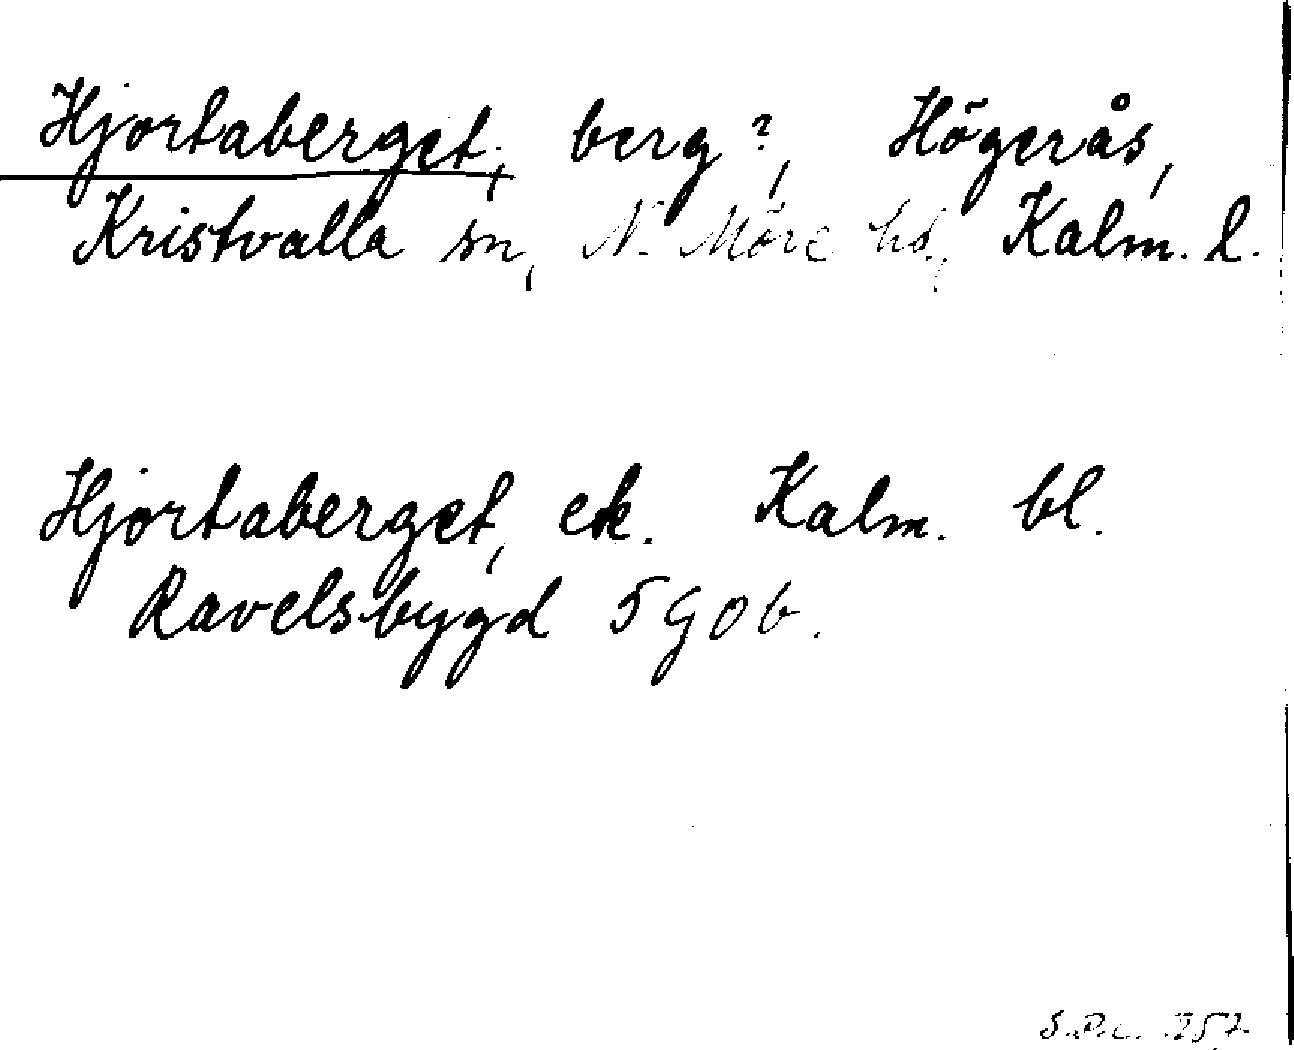 Hjortaberget, berg?, Högerås,
Kristvalla sn, N. Möre hd, Kalm. l.
Hjortaberget, ek. Kalm. bl.
Ravelsbygd 5 g o b.